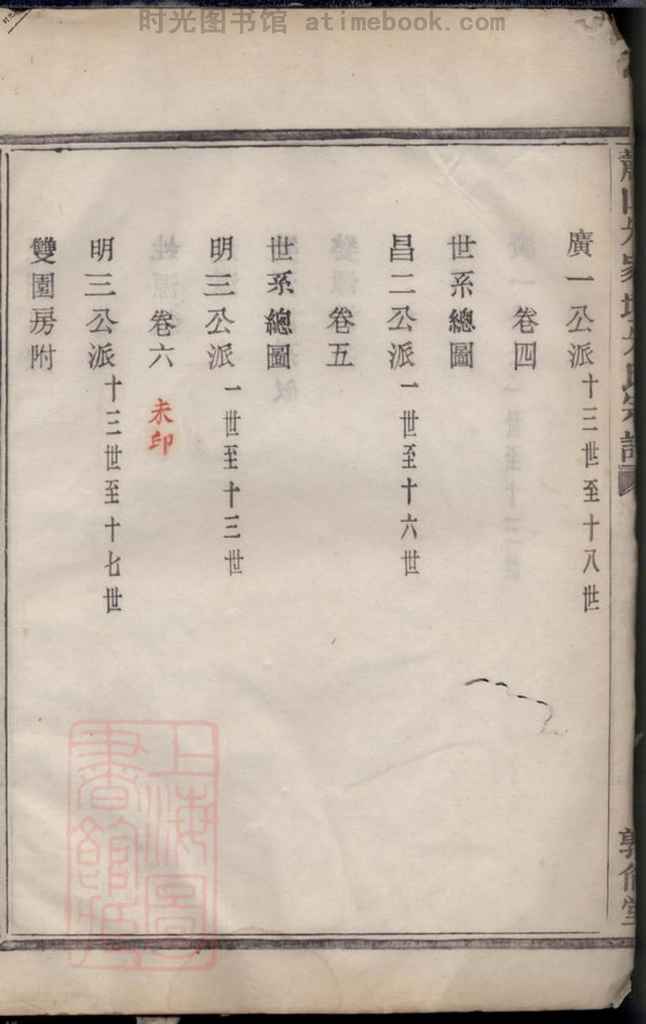 时光图书馆 atimebook.com
廣一公派 十三世至十八世
卷四
世系總圖
昌二公派 一世至十六世
卷五
世系總圖
明三公派 一世至十三世
卷六 未印
明三公派 十三世至十七世
雙園房附
上海圖書館藏